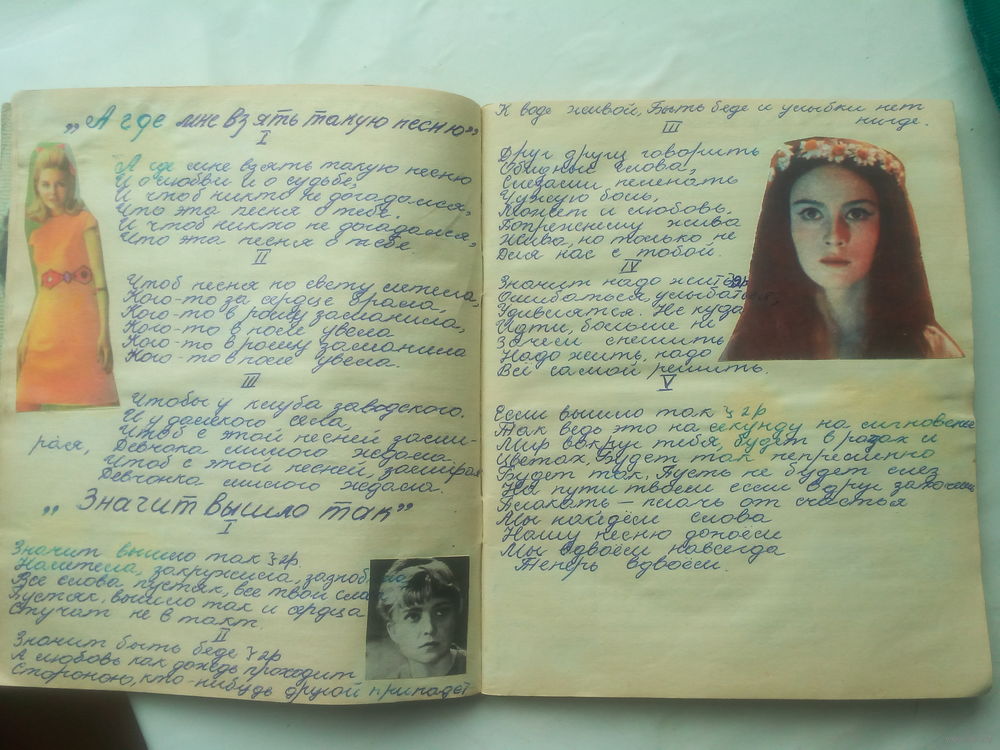 „А где мне взять такую песню"
I
А где мне взять такую песню
И о любви и о судьбе,
И чтоб никто не догадался,
Что эта песня о тебе.
И чтоб никто не догадался,
Что эта песня о тебе
II
Чтоб песня по свету летела,
Кого-то за сердце брала,
Кого-то в рощу заманила,
Кого-то в поле увела
Кого-то в рощу заманила
Кого-то в поле увела.
III
Чтобы у клуба заводского.
И у далёкого села,
Чтоб с этой песней зами-
рая, Девчонка милого ждала.
Чтоб с этой песней, замирая
Девчонка милого ждала.
„Значит вышло так"
I
Значит вышло так }2р
Налетела, закружила, зазнобила
Все слова пустяк, все твои слова
Пустяк, вышло так и сердца
Стучат не в такт.
II
Значит быть беде }2р
А любовь как дождь проходит
Стороною, кто-нибудь другой припадёт
К воде живой, Быть беде и улыбки нет
нигде.
III
Друг другу говорить
Обидные слова,
Слезами пеленать
Чужую боль,
Может и любовь,
Попрежнему жива
Жива, но только не
Для нас с тобой.
IV
Значит надо жить }2р
Ошибаться, улыбаться,
Удивляться. Не куда
Идти, больше и
Зачем спешить
Надо жить, надо
Всё самой решить.
V
Если вышло так }2р
Так ведь это на секунду на мгновенье
Мир вокруг тебя, будет в розах и
Цветах, Будет так непременно
Будет так, Пусть не будет слез
На пути твоём если вдруг захочешь
Плакать – плачь от счастья
Мы найдём слова
Нашу песню допоём
Мы вдвоём навсегда
Теперь вдвоём.